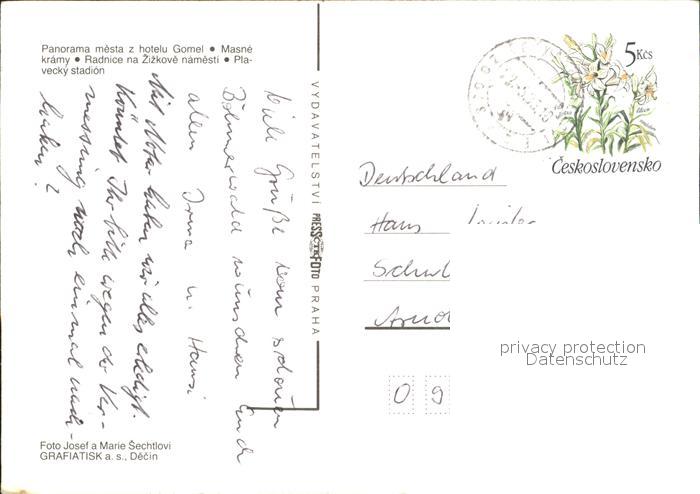 Panorama města z hotelu Gomel • Masné
krámy • Radnice na Žižkově náměstí • Pla-
vecký stadión
Viele Grüße vom schönen
Böhmerwald wünschen Euch
allen Irma u. Hansi
Mit Notar haben wir alles erledigt.
Könntet Ihr bitte wegen der Ver-
messung noch einmal nach-
haken?
Foto Josef a Marie Šechtlovi
GRAFIATISK a. s., Děčín
VYDAVATELSTVÍ PRESSFOTO PRAHA
5 Kčs
Československo
Deutschland
Hans
Schul
Arnd
0 9
privacy protection
Datenschutz